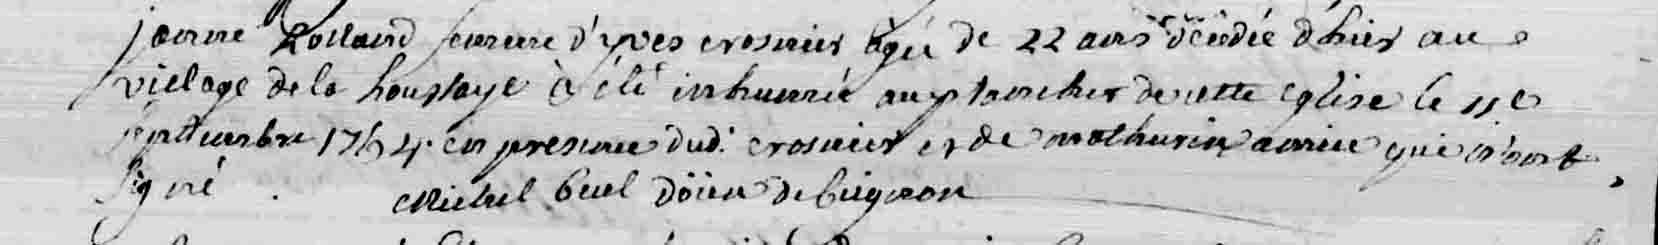 jeanne Rolland femme d'yves crosnier agée de 22 ans décédée d'hier au
village de la houssaye a été inhumée au plancher de cette eglise le 11e
septembre 1764. en presence dud. crosnier et de mathurin qui n'ont
signé. Michel doïen de